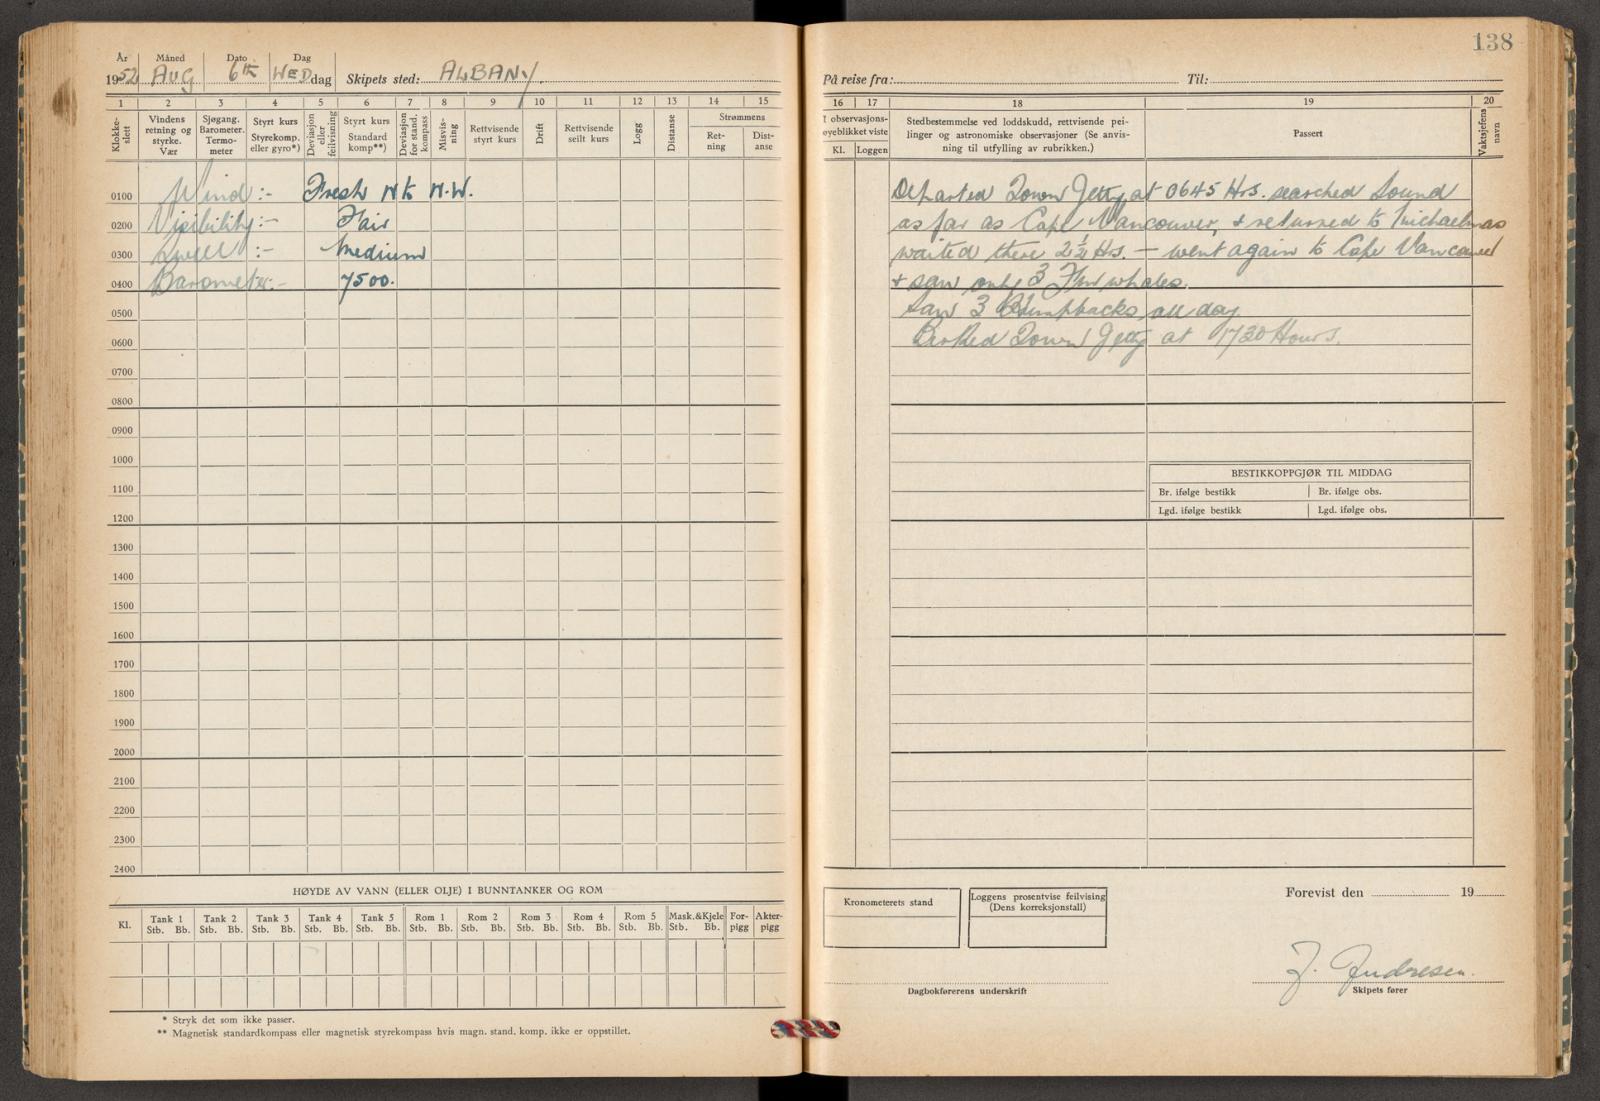 138
År Måned Dato Dag
1952 AUG 6th WED dag Skipets sted: ALBANY.
På reise fra: Til:
1 2 3 4 5 6 7 8 9 10 11 12 13 14 15
16 17 18 19 20
Klokke-slett
Vindens retning og styrke. Vær
Sjøgang. Barometer. Termo-meter
Styrt kurs Styrekomp. eller gyro*)
Deviasjon eller feilvisning
Styrt kurs Standard komp**)
Deviasjon for stand. kompass
Misvis-ning
Rettvisende styrt kurs
Drift
Rettvisende seilt kurs
Logg
Distanse
Strømmens
Ret-ning
Dist-anse
I observasjons-øyeblikket viste
Kl. Loggen
Stedbestemmelse ved loddskudd, rettvisende pei-
linger og astronomiske observasjoner (Se anvis-
ning til utfylling av rubrikken.)
Passert
Vaktsjefens navn
0100 Wind :- Fresh N to N.W.
0200 Visibility :- Fair
0300 Swell :- Medium
0400 Barometer :- 7500.
0500
0600
0700
0800
0900
1000
1100
1200
1300
1400
1500
1600
1700
1800
1900
2000
2100
2200
2300
2400
Departed Town Jetty at 0645 Hrs. searched Sound
as far as Cape Vancouver, & returned to Michaelmas
waited there 2½ Hrs. – went again to Cape Vancouver
& saw only 3 Fin whales.
Saw 3 Humpbacks all day
Berthed Town Jetty at 1730 Hours.
BESTIKKOPPGJØR TIL MIDDAG
Br. ifølge bestikk Br. ifølge obs.
Lgd. ifølge bestikk Lgd. ifølge obs.
HØYDE AV VANN (ELLER OLJE) I BUNNTANKER OG ROM
Kl. Tank 1 Tank 2 Tank 3 Tank 4 Tank 5 Rom 1 Rom 2 Rom 3 Rom 4 Rom 5 Mask.&Kjele For-pigg Akter-pigg
Stb. Bb. Stb. Bb. Stb. Bb. Stb. Bb. Stb. Bb. Stb. Bb. Stb. Bb. Stb. Bb. Stb. Bb. Stb. Bb. Stb. Bb.
* Stryk det som ikke passer.
** Magnetisk standardkompass eller magnetisk styrekompass hvis magn. stand. komp. ikke er oppstillet.
Kronometerets stand
Loggens prosentvise feilvising
(Dens korreksjonstall)
Forevist den 19
Dagbokførerens underskrift
J. Andresen.
Skipets fører